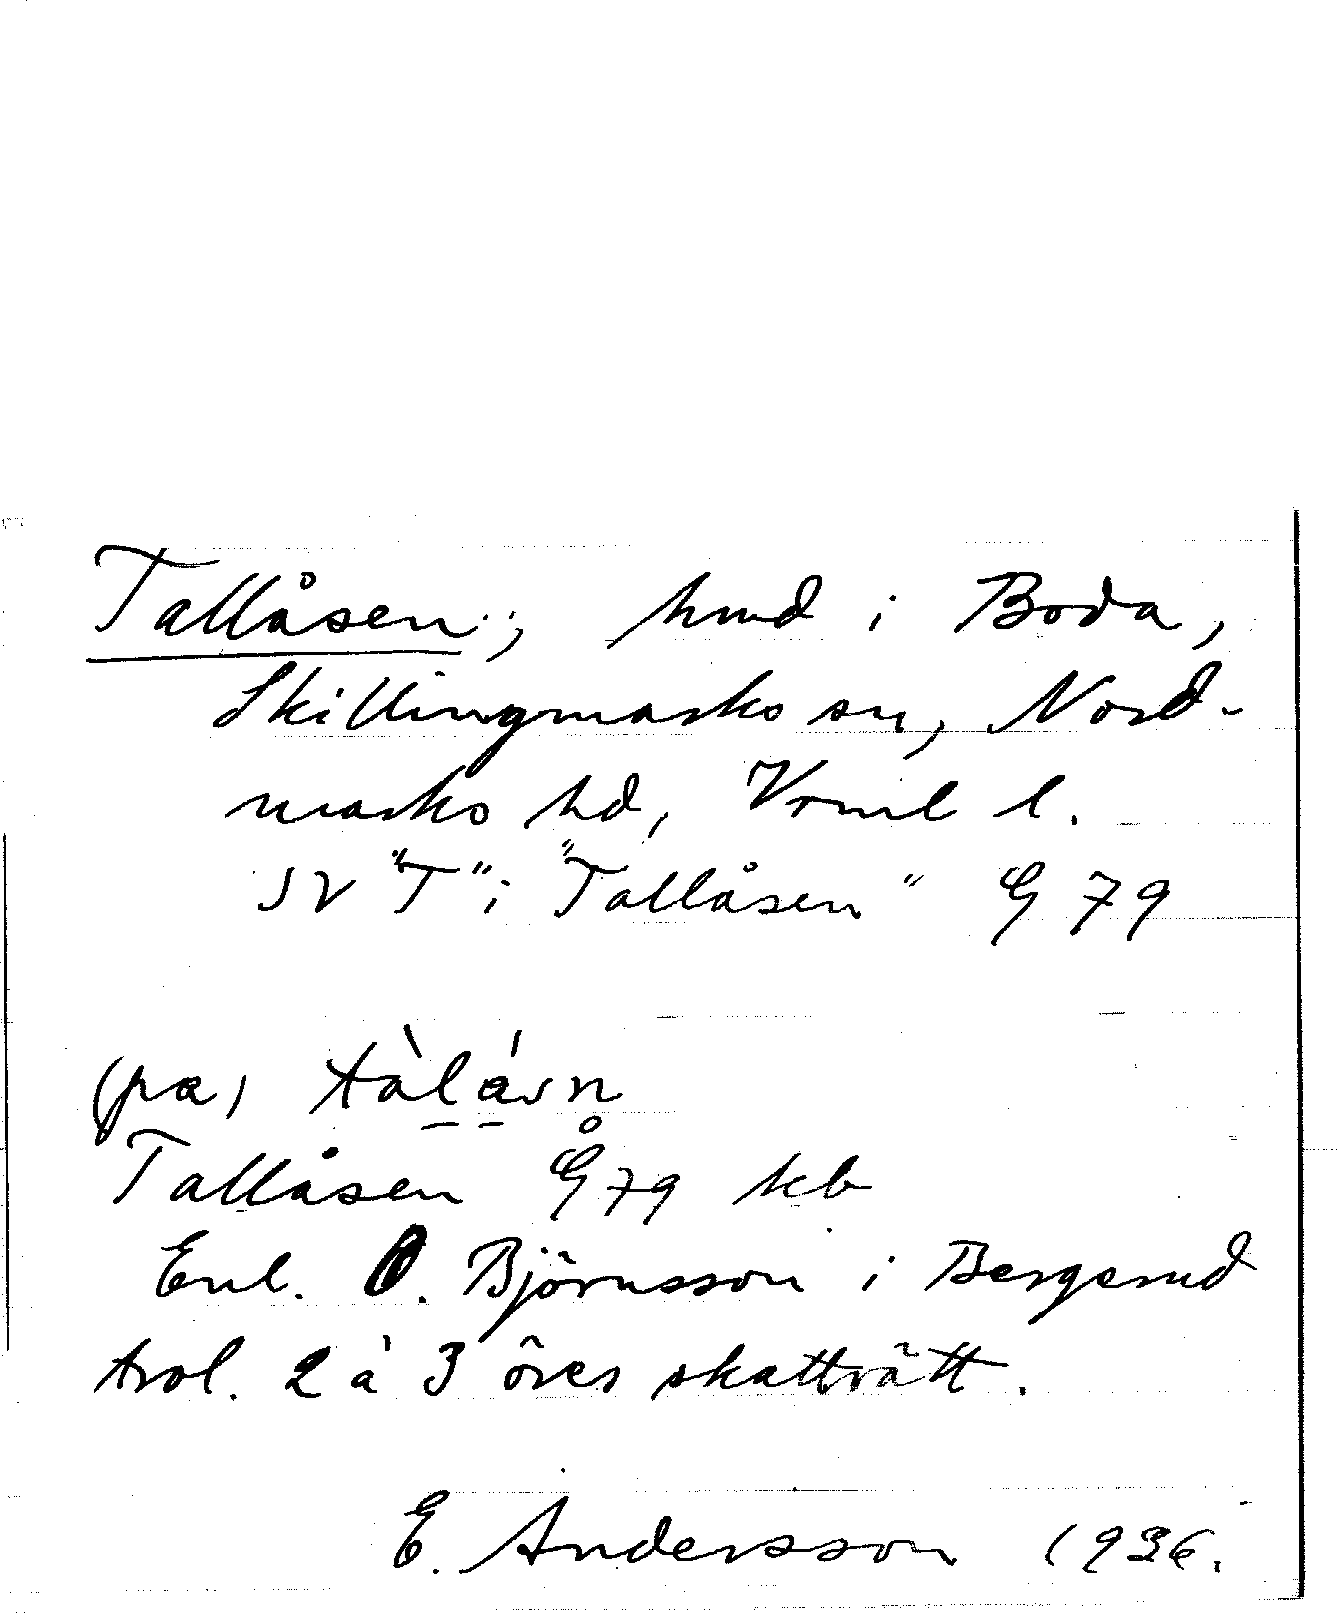 Tallåsen, hmd i Boda,
Skillingmarks sn, Nord-
marks hd, Vrml l.
SV "T" i "Tallåsen" G 79
(pa) tàlásn
Tallåsen G 79 kb
Enl. O. Björnsson i Bergerud
trol. 2 à 3 öres skatträtt.
E. Andersson 1936.